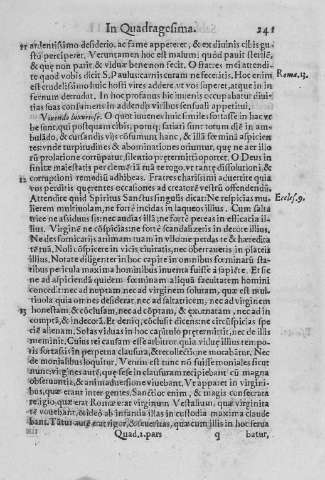 In Quadragesima. 241
ardentissimo desiderio, ac fame appereret, & ex diuinis cibis gu-
stū perciperet. Veruntamen hoc est malum: quòd pauit sterilē,
& quę non parit & viduæ benè non fecit. O fratres mei attendi-
te quod vobis dicit S. Paulus: carnis curam ne feceritis. Hoc enim Roma. 13.
est crudelissimo huic hosti vires addere, vt vos superet, atque in in-
fernum detrudat. In hoc profanus hic iuuenis occupabatur diuiti-
as suas consumens in addendis viribus sensuali appetitui.
Viuendo luxuriosè. O quot iuuenes huic similes fortasse in hac vr-
be sunt, qui postquam cibis, potuq́; satiati sunt totum diē in am-
bulādo, & cursandis vijs cōsumunt hanc, & illā fœminā aspicien
tes, vnde turpitudines & abominationes oriuntur, quę ne aer illo
rū prolatione corrūpatur, silentio prętermitti oportet. O Deus in
finitæ maiestatis per clemētiā tuā te rogo, vt tantę dissolutioni, &
corruptioni remediū adhibeas. Fratres charissimi aduertite quia
vos perditis quęrentes occasiones ad creatorē vestrū offendendū.
Attendite quid Spiritus Sanctus singulis dicat: Ne respicias mu Eccles. 9.
lierem multiuolam, ne fortè incidas in laqueos illius. Cum salta
trice ne assiduus sis: nec audias illā: ne fortè pereas in efficacia il-
lius. Virginē ne cōspicias: ne fortè scandalizeris in decore illius,
Ne des fornicarijs animam tuam in vllo: ne perdas te & hæredita
tē tuā. Noli cispicere in vicis ciuitatis, nec oberraueris in plateis
illius. Notate diligenter in hoc capite in omnibus fœminarū sta-
tibus pericula maxima hominibus inuenta fuisse à sapiēte. Et sic
ne ad aspiciendā quidem fœminam aliquā facultatem homini
concedit: nec ad nuptam, nec ad virginem solutam, quæ est mul-
tiuola quia omnes desiderat, nec ad saltatricem, nec ad virginem
honestam, & cōclusam, nec ad cōptam, & exornatam, nec ad in
comptā, & indecorā. Et deniq́; cōclusit dicens: ne circūspicias spe
ciē alienam. Solas viduas in hoc capitulo prętermittit, nec de illis
meminit. Cuius rei causam esse arbitror quia viduę illius tempo-
ris fortassis in perpetua clausura, & recollectiōe morabātur. Nec
de monialibus loquitur. Verùm est tunc nō fuisse moniales sicut
nunc: virgines autē, quę sese in clausuram recipiebant cū magna
obseruantia, & animaduersione viuebant. Vt apparet in virgini-
bus, quæ erant inter gentes. Sanctior enim, & magis consecrata
religio, quæ erat Romæ erat virginum Vestalium, quæ virginita
tē vouebant, & ideò ab infantia illas in custodia maxima claude
bant. Tātus autē erat rigor, & seueritas, quæ cum illis in hoc serua
Quad. 1. pars q batur,